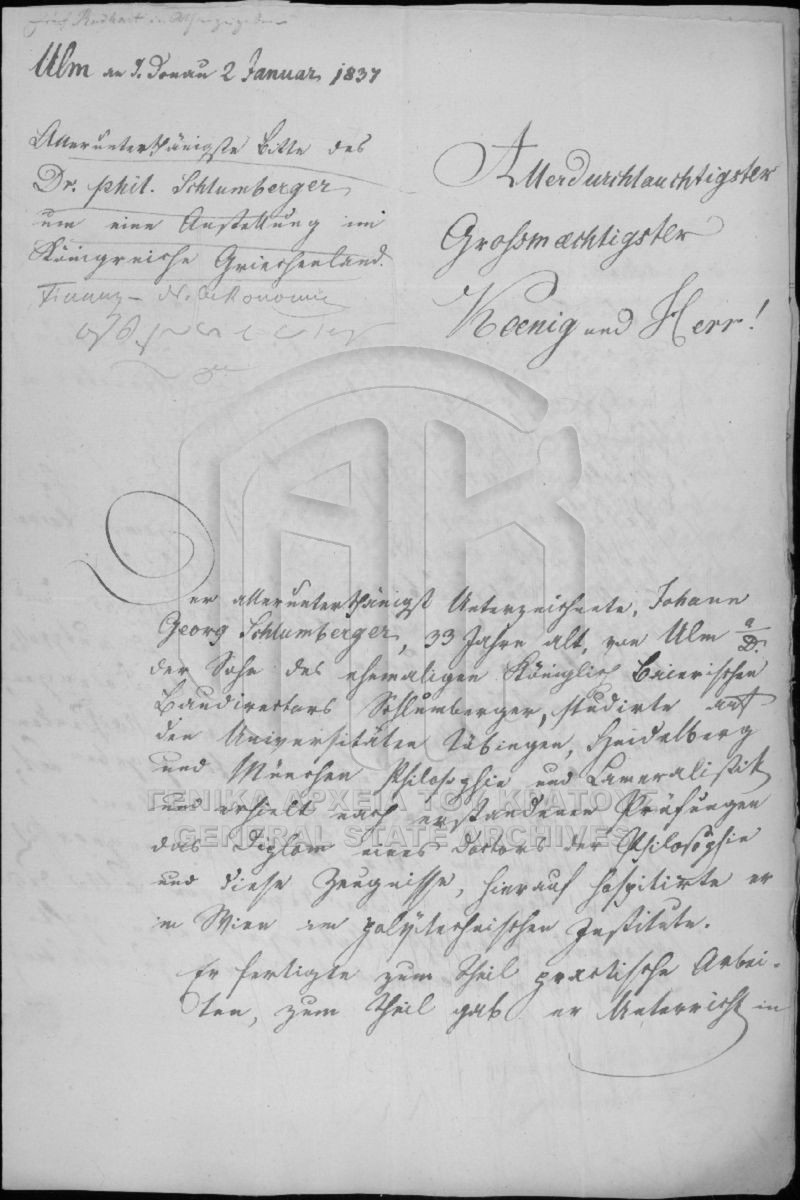 Ulm an d. Donau 2 Januar 1837
Allerunterthänigste Bitte des
Dr. phil. Schlumberger,
um eine Anstellung im
Königreiche Griechenland.
Finanz- N. Oekonomie
Allerdurchlauchtigster
Grossmæchtigster
Kœnig und Herr!
Der allerunterthänigst Unterzeichnete, Johann
Georg Schlumberger, 33 Jahre alt, von Ulm a/D.
der Sohn des ehemaligen Königlich Baierischen
Baudirectors Schlumberger, studirte auf
den Universitäten Tübingen, Heidelberg
und München Philosophie und Cameralistik
und erhielt nach erstandenen Prüfungen
das Diplom eines Doctors der Philosophie
und diese Zeugnisse, hierauf hospitirte er
in Wien am polytechnischen Institute.
Er fertigte zum Theil practische Arbei-
ten, zum Theil gab er Unterricht in
ΓΕΝΙΚΑ ΑΡΧΕΙΑ ΤΟΥ ΚΡΑΤΟΥΣ
GENERAL STATE ARCHIVES